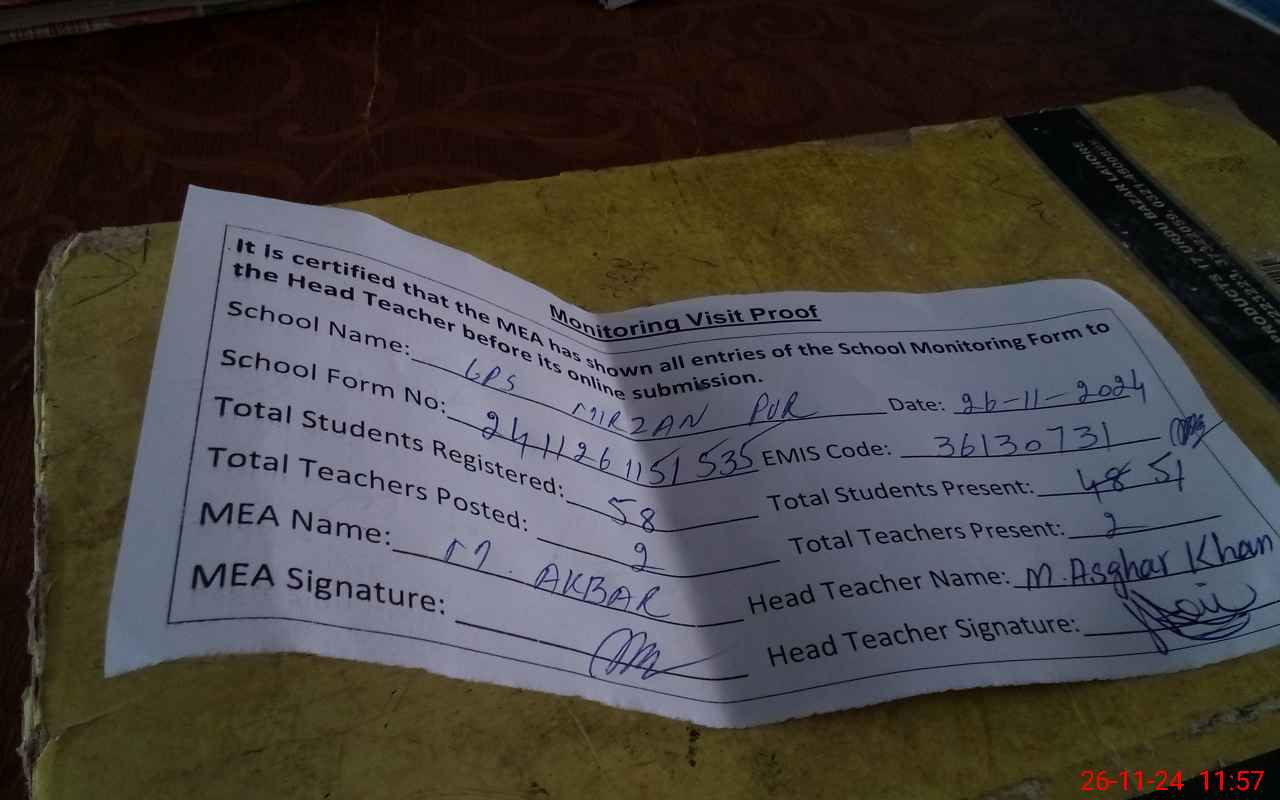 Monitoring Visit Proof
It is certified that the MEA has shown all entries of the School Monitoring Form to
the Head Teacher before its online submission.
School Name: GPS MIRZAN PUR Date: 26-11-2024
School Form No: 241126 1151 535 EMIS Code: 36130731
Total Students Registered: 58 Total Students Present: 48 51
Total Teachers Posted: 2 Total Teachers Present: 2
MEA Name: M. AKBAR Head Teacher Name: M. Asghar Khan
MEA Signature: Head Teacher Signature:
PRODUCTS 17 URDU BAZAR LAHORE
26-11-24 11:57